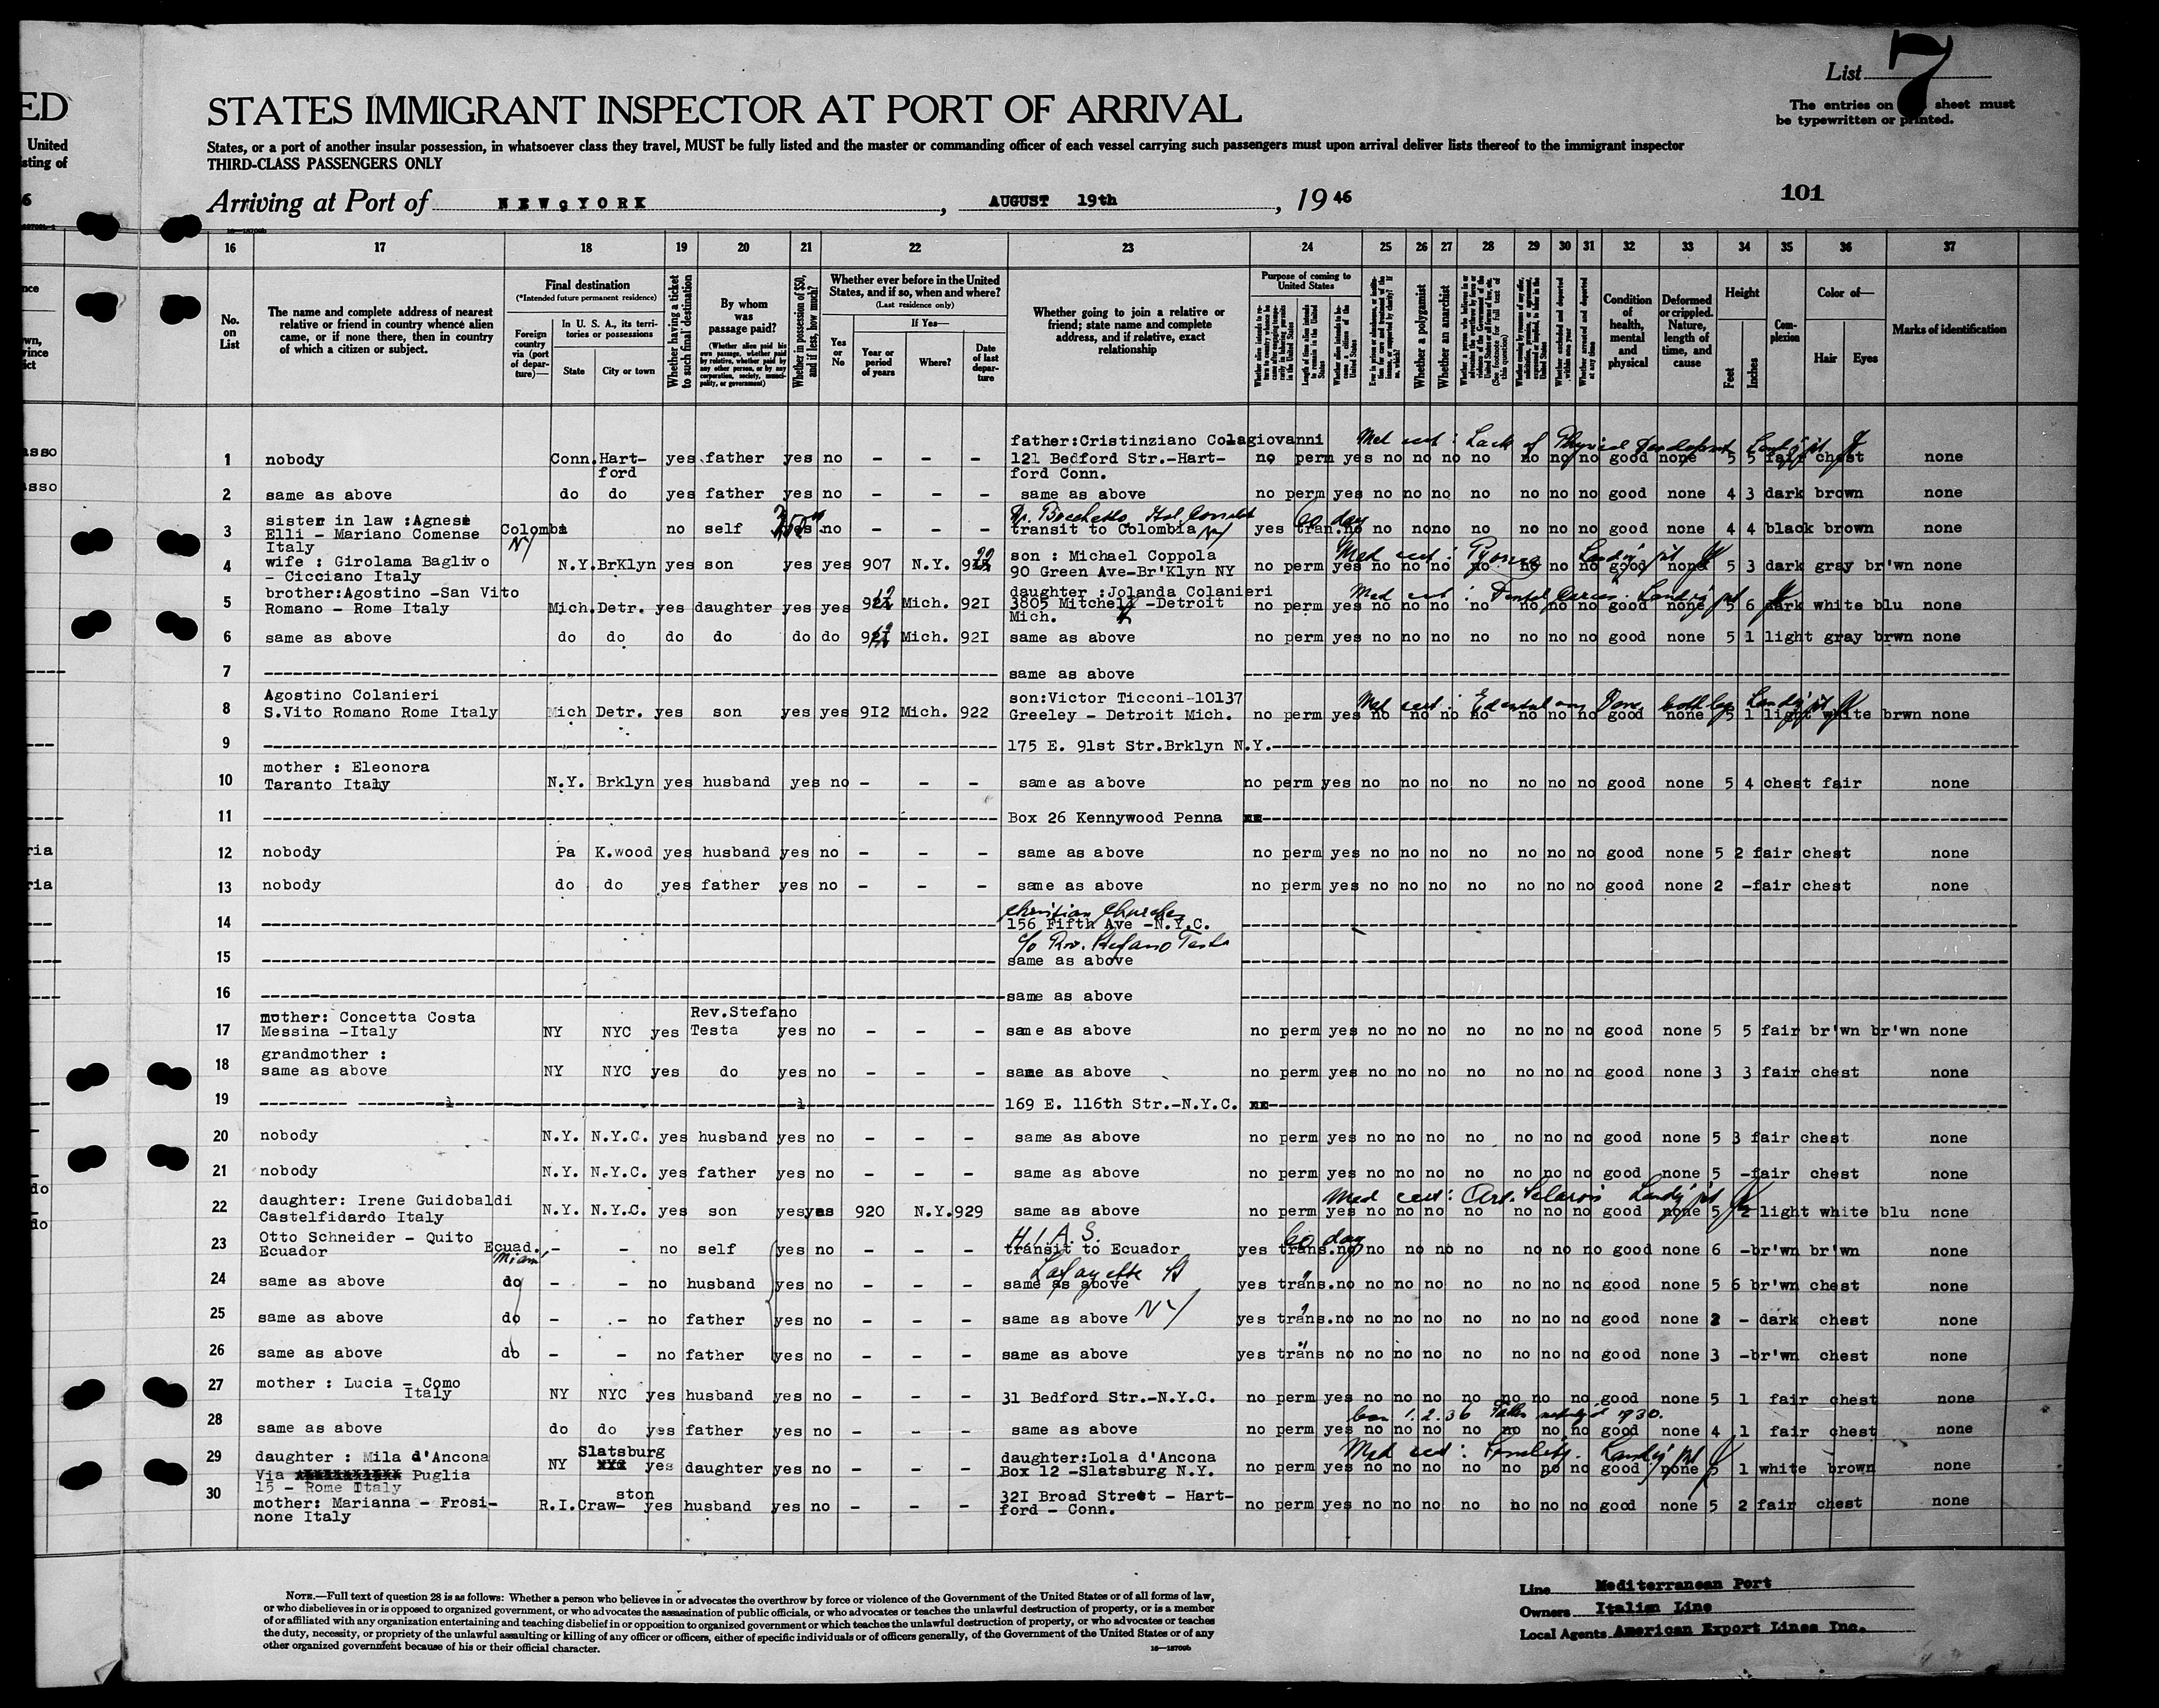 List 7
ED
STATES IMMIGRANT INSPECTOR AT PORT OF ARRIVAL
The entries on sheet must
be typewritten or printed.
United
States, or a port of another insular possession, in whatsoever class they travel, MUST be fully listed and the master or commanding officer of each vessel carrying such passengers must upon arrival deliver lists thereof to the immigrant inspector
sting of
THIRD-CLASS PASSENGERS ONLY
6
Arriving at Port of NEWgYORK, AUGUST 19th, 19 46
101
16 17 18 19 20 21 22 23 24 25 26 27 28 29 30 31 32 33 34 35 36 37
No. on List
The name and complete address of nearest relative or friend in country whence alien came, or if none there, then in country of which a citizen or subject.
Final destination
(*Intended future permanent residence)
Foreign country via (port of departure)—
In U. S. A., its territories or possessions
State
City or town
Whether having a ticket to such final destination
By whom was passage paid?
(Whether alien paid his own passage, whether paid by relative, whether paid by any other person, or by any corporation, society, municipality, or government)
Whether in possession of $50, and if less, how much?
Whether ever before in the United States, and if so, when and where?
(Last residence only)
Yes or No
If Yes—
Year or period of years
Where?
Date of last departure
Whether going to join a relative or friend; state name and complete address, and if relative, exact relationship
Purpose of coming to United States
Whether a polygamist
Whether an anarchist
Condition of health, mental and physical
Deformed or crippled. Nature, length of time, and cause
Height
Feet
Inches
Complexion
Color of—
Hair
Eyes
Marks of identification
father:Cristinziano Colagiovanni Med cert: Lack of Physical
1 nobody Conn. Hart- yes father yes no - - - 121 Bedford Str.-Hart- no perm yes no no no no no no no good none 5 5 fair chest none
ford ford Conn.
2 same as above do do yes father yes no - - - same as above no perm yes no no no no no no no good none 4 3 dark brown none
sister in law :Agnese
3 Elli - Mariano Comense Colombi no self no - - - transit to Colombia NY yes tran.no no no no no no no no good none 4 4 black brown none
Italy NY 60 day
wife : Girolama Baglivo son : Michael Coppola Med cert:
4 - Cicciano Italy N.Y. BrKlyn yes son yes yes 907 N.Y. 90 Green Ave-Br'Klyn NY no perm yes no no no no no no no good none 5 3 dark gray br'wn none
brother:Agostino -San Vito daughter :Jolanda Colanieri Med cert: Dental Caries.
5 Romano - Rome Italy Mich. Detr. yes daughter yes yes Mich. 92I 3805 Mitchell -Detroit no perm yes no no no no no no no good none 5 6 dark white blu none
Mich.
6 same as above do do do do do do Mich. 92I same as above no perm yes no no no no no no no good none 5 1 light gray brwn none
7 same as above
Agostino Colanieri son:Victor Ticconi-10137 Med cert:
8 S.Vito Romano Rome Italy Mich Detr. yes son yes yes 9I2 Mich. 922 Greeley - Detroit Mich. no perm yes no no no no no no no good none 5 1 light white brwn none
9 175 E. 91st Str.Brklyn N.Y.
mother : Eleonora
10 Taranto Italy N.Y. Brklyn yes husband yes no - - - same as above no perm yes no no no no no no no good none 5 4 chest fair none
11 Box 26 Kennywood Penna
12 nobody Pa K.wood yes husband yes no - - - same as above no perm yes no no no no no no no good none 5 2 fair chest none
13 nobody do do yes father yes no - - - same as above no perm yes no no no no no no no good none 2 - fair chest none
Christian Churches
14 156 Fifth Ave -N.Y.C.
c/o Rev. Stefano Testa
15 same as above
16 same as above
mother: Concetta Costa Rev.Stefano
17 Messina -Italy NY NYC yes Testa yes no - - - same as above no perm yes no no no no no no no good none 5 5 fair br'wn br'wn none
grandmother :
18 same as above NY NYC yes do yes no - - - same as above no perm yes no no no no no no no good none 3 3 fair chest none
19 169 E. 116th Str.-N.Y.C.
20 nobody N.Y. N.Y.C. yes husband yes no - - - same as above no perm yes no no no no no no no good none 5 3 fair chest none
21 nobody N.Y. N.Y.C. yes father yes no - - - same as above no perm yes no no no no no no no good none 5 - fair chest none
daughter: Irene Guidobaldi Med cert:
22 Castelfidardo Italy N.Y. N.Y.C. yes son yes yes 920 N.Y. 929 same as above no perm yes no no no no no no no good none 5 2 light white blu none
Otto Schneider - Quito H.I.A.S. 60 day
23 Ecuador Ecuad. - - no self yes no - - - transit to Ecuador yes trans.no no no no no no no no good none 6 - br'wn br'wn none
Miami Lafayette St
24 same as above do - - no husband yes no - - - same as above yes trans.no no no no no no no no good none 5 6 br'wn chest none
25 same as above do - - no father yes no - - - same as above NY yes trans.no no no no no no no no good none 2 - dark chest none
26 same as above do - - no father yes no - - - same as above yes trans no no no no no no no no good none 3 - br'wn chest none
27 mother : Lucia - Como NY NYC yes husband yes no - - - 31 Bedford Str.-N.Y.C. no perm yes no no no no no no no good none 5 1 fair chest none
Italy
28 same as above do do yes father yes no - - - same as above no perm yes no no no no no no no good none 4 1 fair chest none
Slatsburg
29 daughter : Mila d'Ancona NY yes daughter yes no - - - daughter:Lola d'Ancona Med cert: Senility.
Via Puglia Box 12 -Slatsburg N.Y. no perm yes no no no no no no no good none 5 1 white brown none
15 - Rome Italy
30 mother: Marianna - Frosi- R.I. Craw- ston yes husband yes no - - - 32I Broad Street - Hart- no perm yes no no no no no no no good none 5 2 fair chest none
none Italy ford - Conn.
NOTE.—Full text of question 28 is as follows: Whether a person who believes in or advocates the overthrow by force or violence of the Government of the United States or of all forms of law,
or who disbelieves in or is opposed to organized government, or who advocates the assassination of public officials, or who advocates or teaches the unlawful destruction of property, or is a member
of or affiliated with any organization entertaining and teaching disbelief in or opposition to organized government or which teaches the unlawful destruction of property, or who advocates or teaches
the duty, necessity, or propriety of the unlawful assaulting or killing of any officer or officers, either of specific individuals or of officers generally, of the Government of the United States or of any
other organized government because of his or their official character.
Line Mediterranean Port
Owners Italian Line
Local Agents American Export Lines Inc.